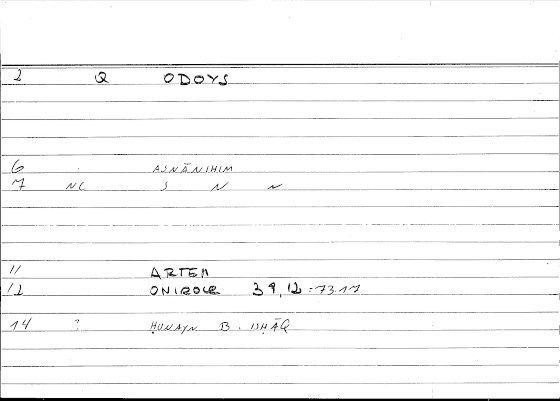 2 Q ODOYS
6 . ASNĀNIHIM
7 NC S N N
11 ARTEM
12 ONIROCR 39,12 = 73.17
14 ? ḤUNAYN B. ISḤĀQ